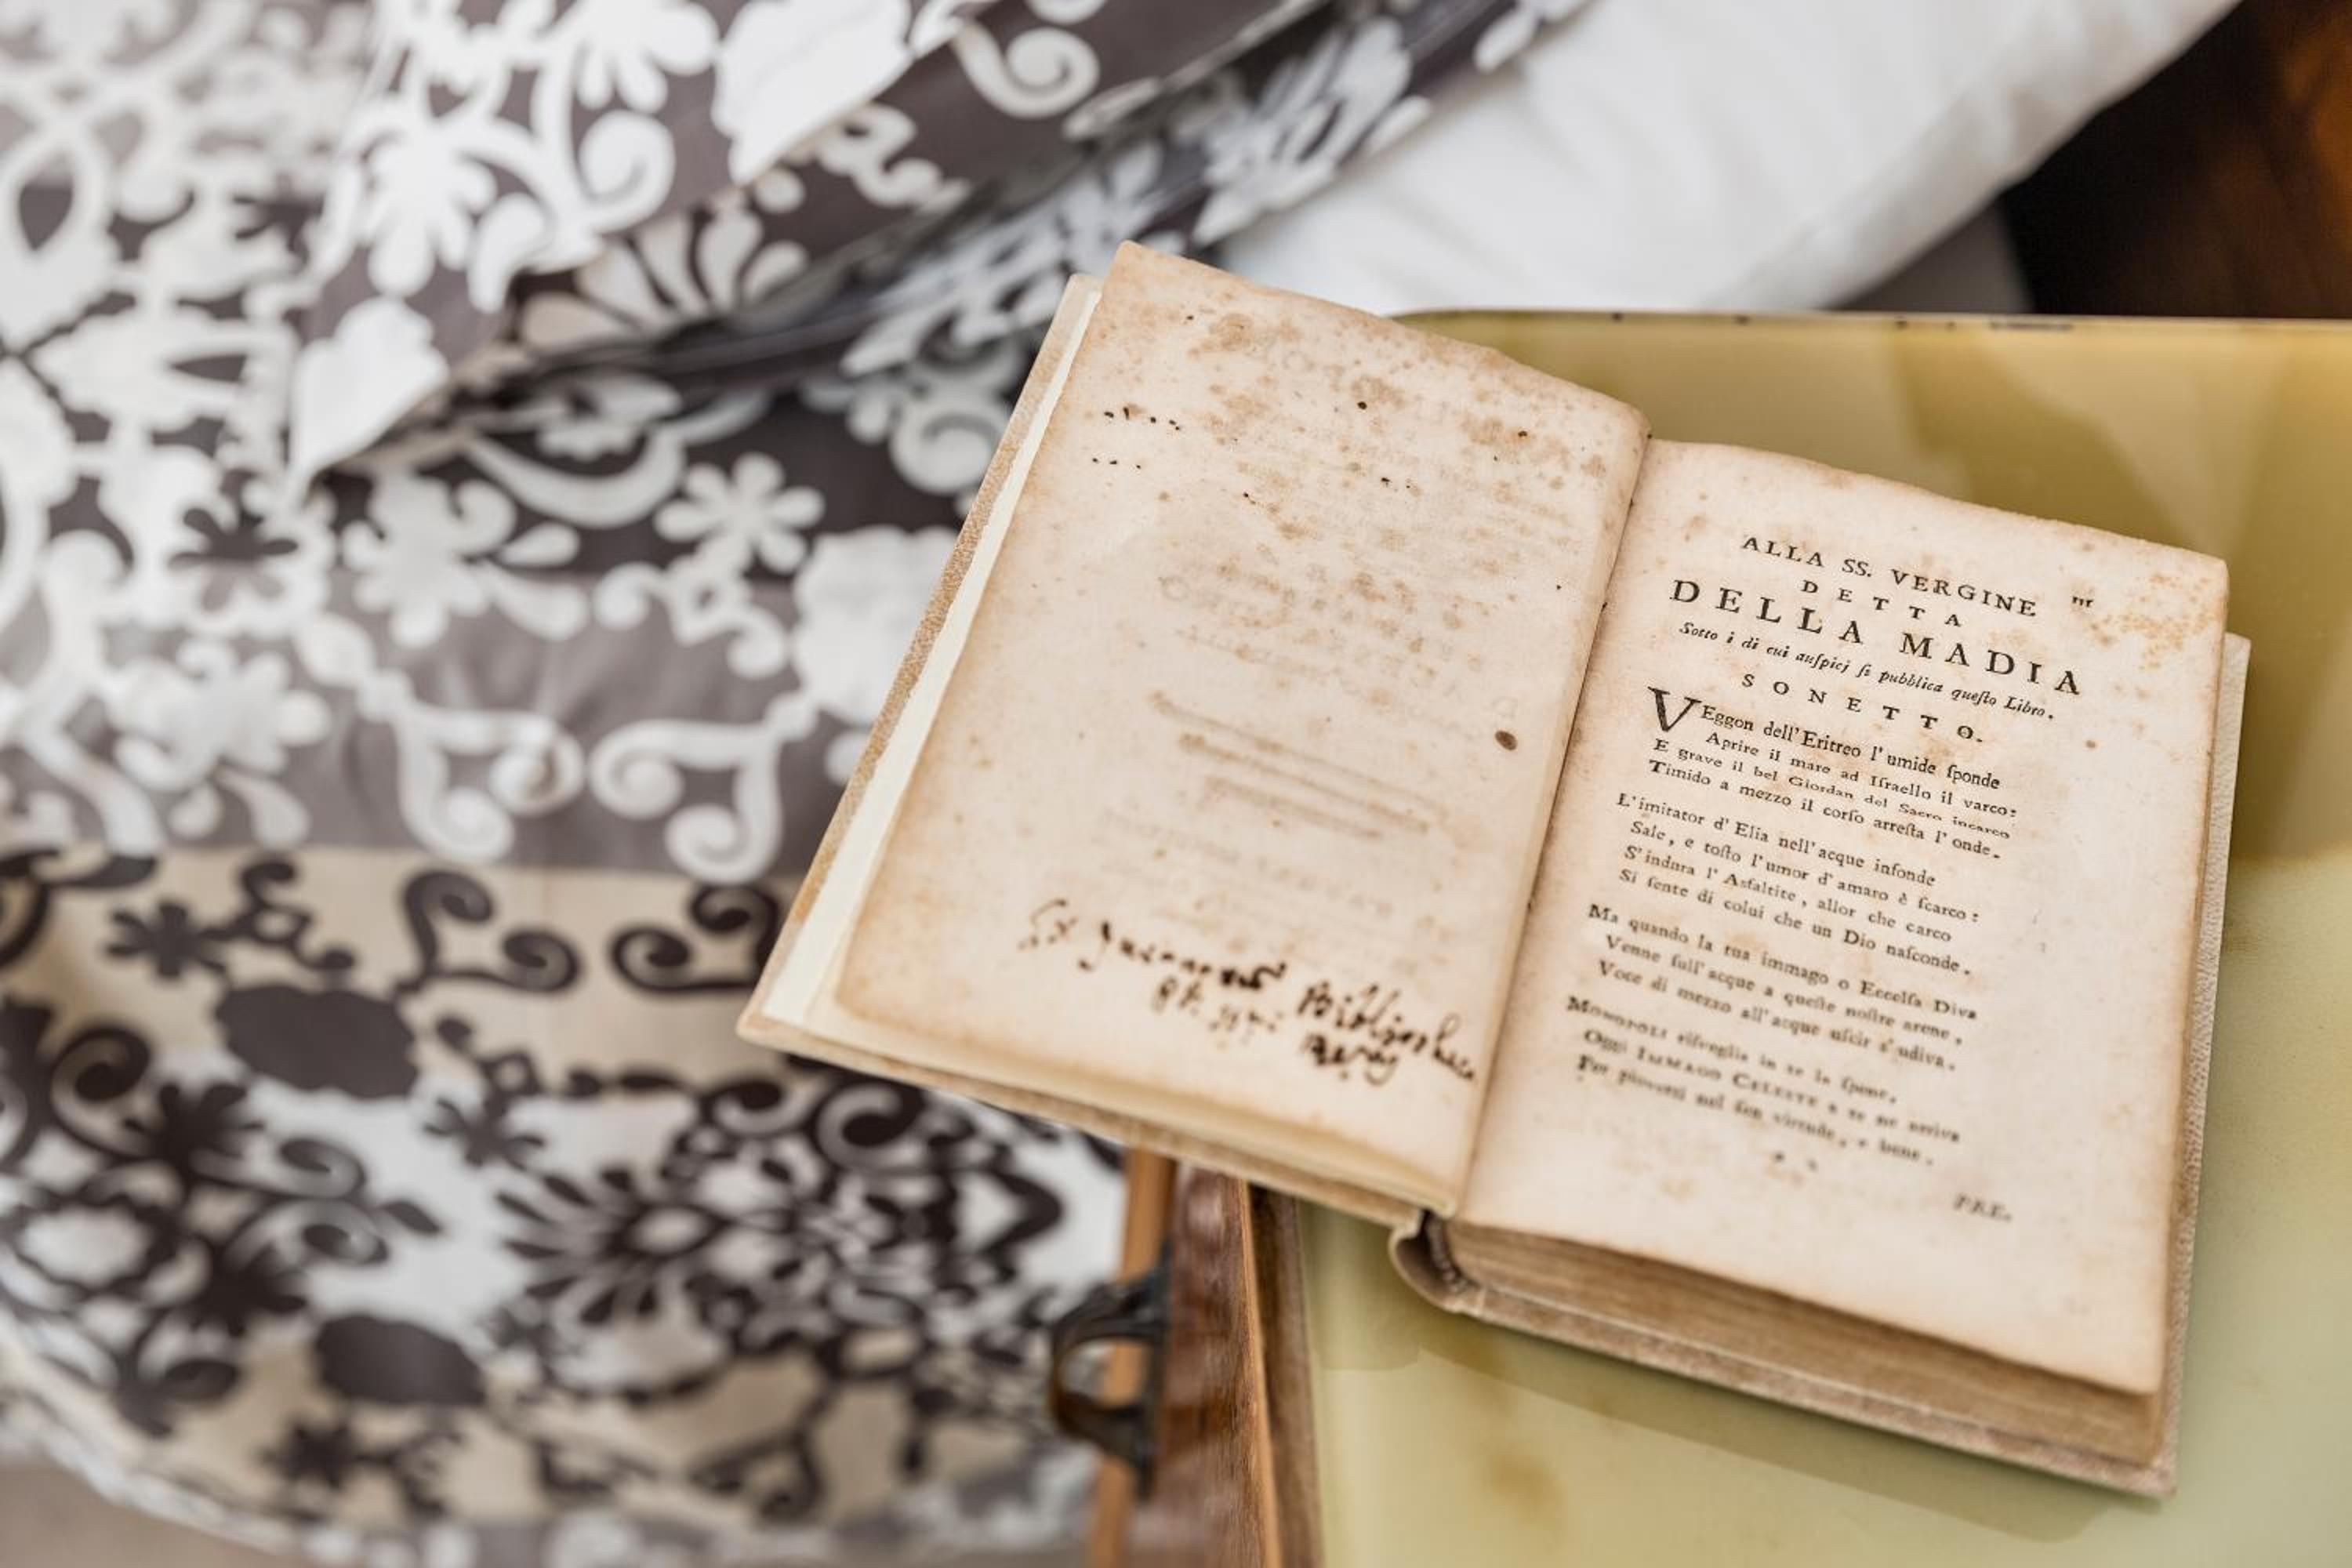 Ex
ALLA SS. VERGINE
III
DETTA
DELLA MADIA
Sotto i di cui auſpicj ſi pubblica queſto Libro.
SONETTO.
VEggon dell'Eritreo l'umide ſponde
Aprire il mare ad Iſraello il varco:
E grave il bel Giordan del Sacro incarco
Timido a mezzo il corſo arreſta l'onde.
L'imitator d'Elia nell'acque infonde
Sale, e toſto l'umor d'amaro è ſcarco:
S'indura l'Asfaltite, allor che carco
Si ſente di colui che un Dio naſconde.
Ma quando la tua immago o Eccelſa Diva
Venne ſull'acque a queſte noſtre arene,
Voce di mezzo all'acque uſcir s'udiva.
MONOPOLI riſveglia in te la ſpene,
Oggi IMMAGO CELESTE a te ne arriva
Per pioverti nel ſen virtude, e bene.
PRE-